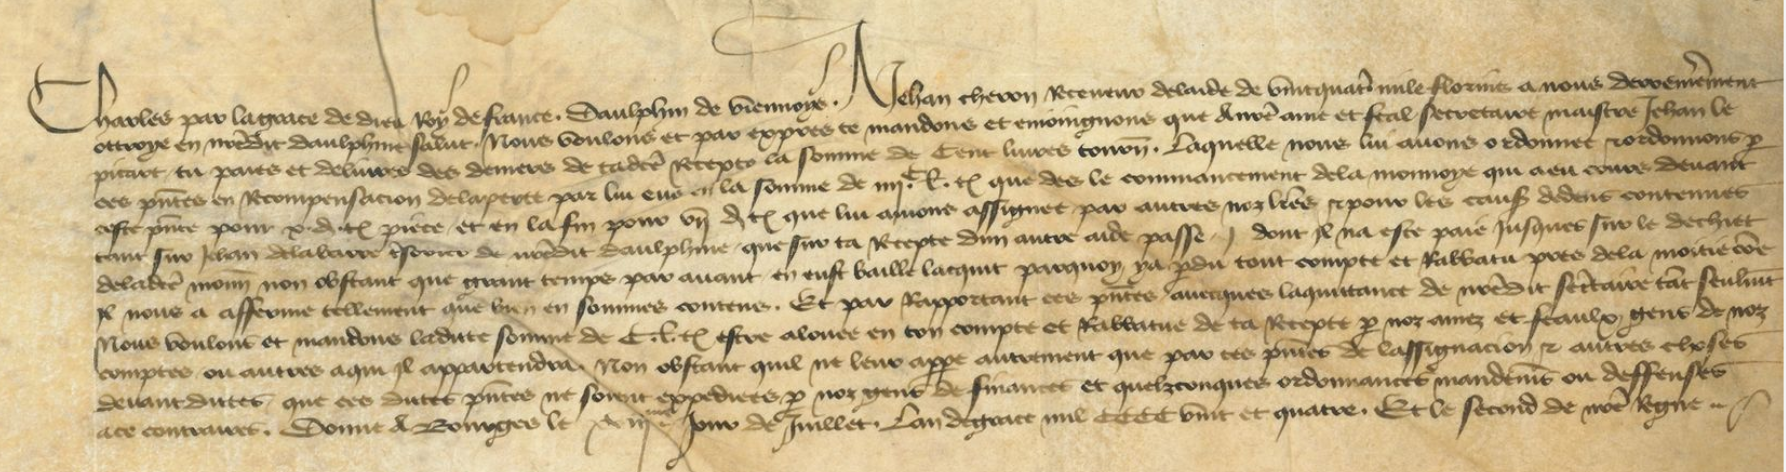 Charles par la grace de dieu Roy de france. Daulphin de viennoys. A Jehan cheron Receveur delaide de vintquatre mile florins a nous derrenierement
ottroye en nredit daulphine salut. Nous voulons et par expres te mandons et enioingnons que A nre ame et feal secretaire maistre Jehan le
picart, tu paies et delivres des deniers de tadicte Recepte la somme de Cent livres tourn. Laquelle nous lui avons ordonnee et ordonnons p
ces pntes en Recompensacion delaperte par lui eue en la somme de iiij C. l. t que des le commancement dela monnoye qui a eu cours devant
ceste pnte pour x. d. t piece et en la fin pour vij d. t que lui avions assignee par autres noz lres et pour les causes dedens contenues
tant sur Jehan delabarre tresorier de nredit daulphine que sur ta Recepte dun autre aide passe dont Il na este paie Jusques sur le dechiet
deladicte monn non obstant que grant temps par avant en eust baille lacquit parquoy y a pdu tout compte et Rabbatu pres dela moitie come
Il nous a afferme tellement que bien en sommes contens. Et par Rapportant ces pntes avecques laquittance de nredit secretaire tant seulemt
Nous voulons et mandons ladicte somme de C. l. t estre alouee en ton compte et Rabbatue de ta Recepte p noz amez et feaulx gens de noz
comptes ou autres a qui Il appartendra. Non obstant quil ne leur appe autrement que par ces pntes de lassignacion et autres choses
devantdictes, que ces dictes pntes ne soient expediees p noz gens de finances et quelzconques ordonnances mandemens ou deffenses
ace contraires. Donne A Bourges le Jour de Juillet. Lan degrace mil CCCC vint et quatre. Et le second de nre Regne